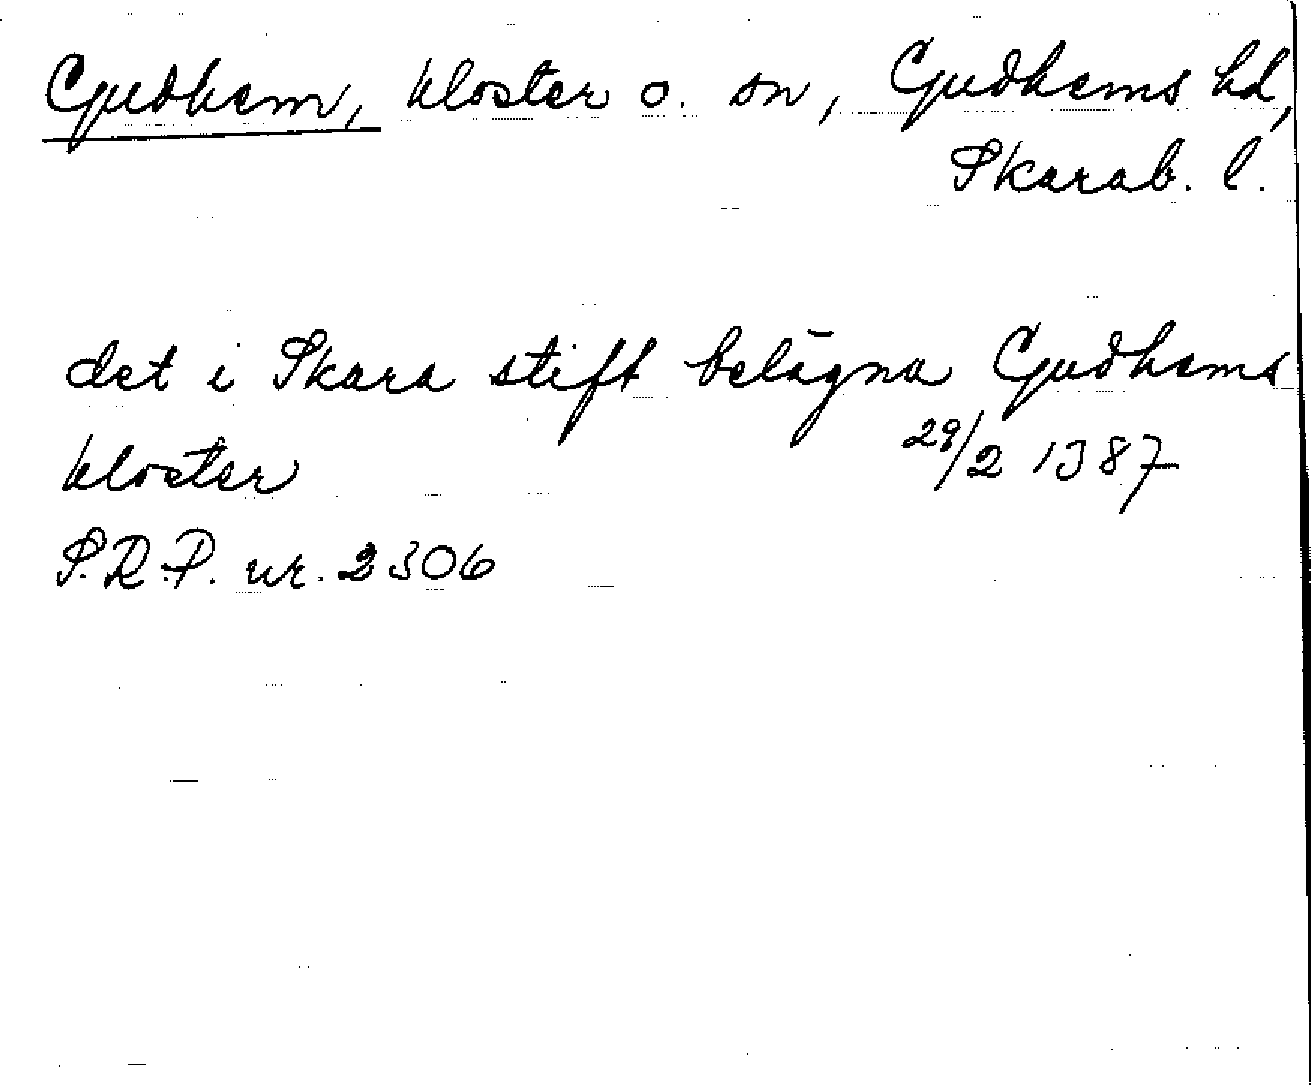 Gudhem, kloster o. sn, Gudhems hd,
Skarab. l.
det i Skara stift belägna Gudhems
kloster 29/2 1387
S.R.P. nr. 2306